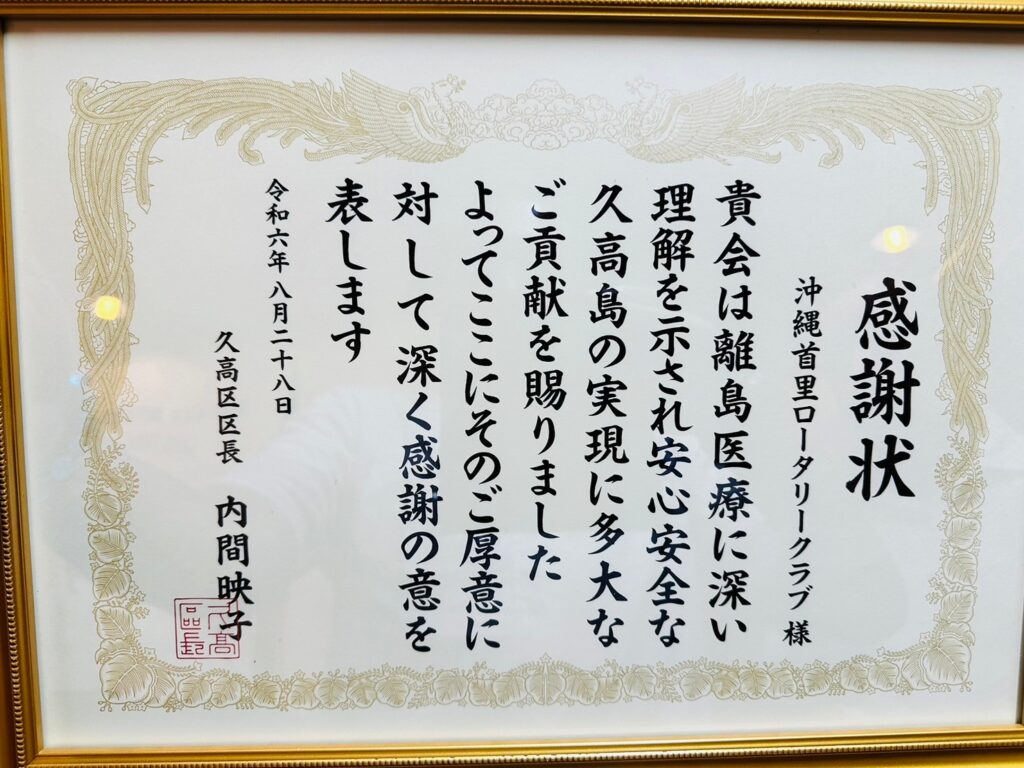 感謝状
沖縄首里ロータリークラブ 様
貴会は離島医療に深い
理解を示され安心安全な
久高島の実現に多大な
ご貢献を賜りました
よってここにそのご厚意に
対して深く感謝の意を
表します
令和六年 八月二十八日
久高区区長 内間映子
久高
區長印